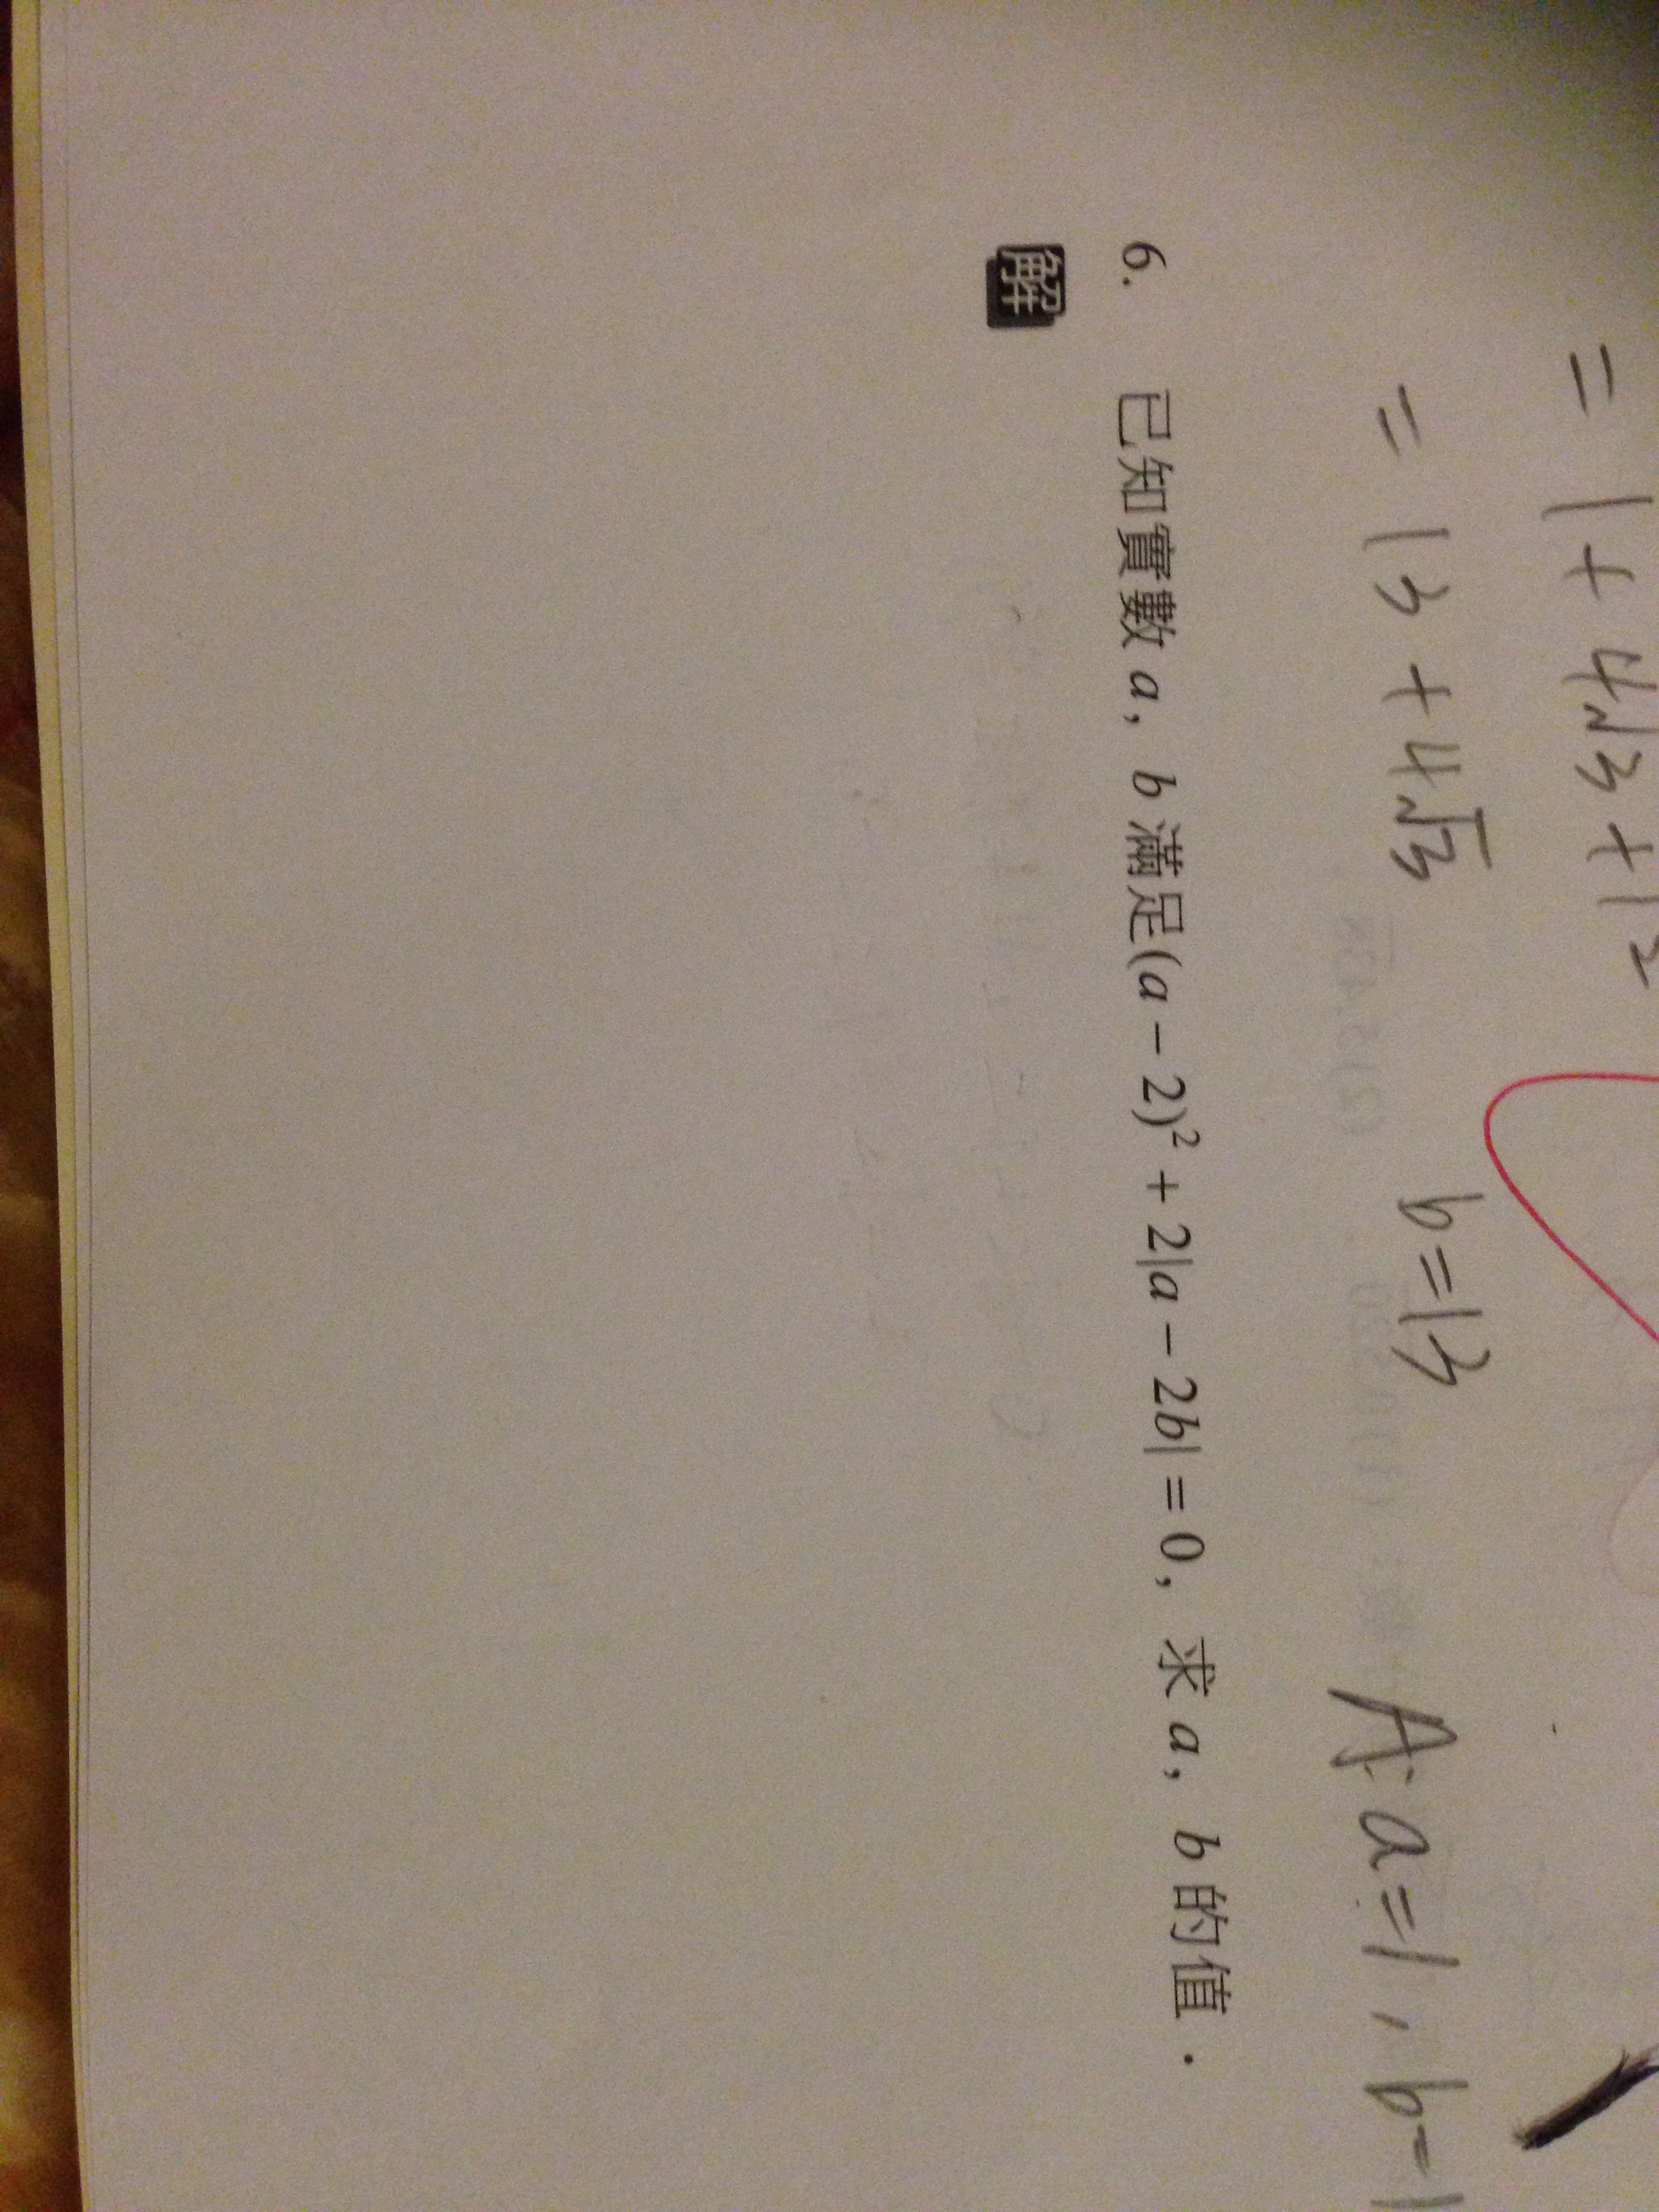 = 1 + 4√3 + 12
= 13 + 4√3 b = 13 A: a = 1, b = 1
6. 已知實數 a, b 滿足(a − 2)² + 2|a − 2b| = 0, 求 a, b 的值.
解